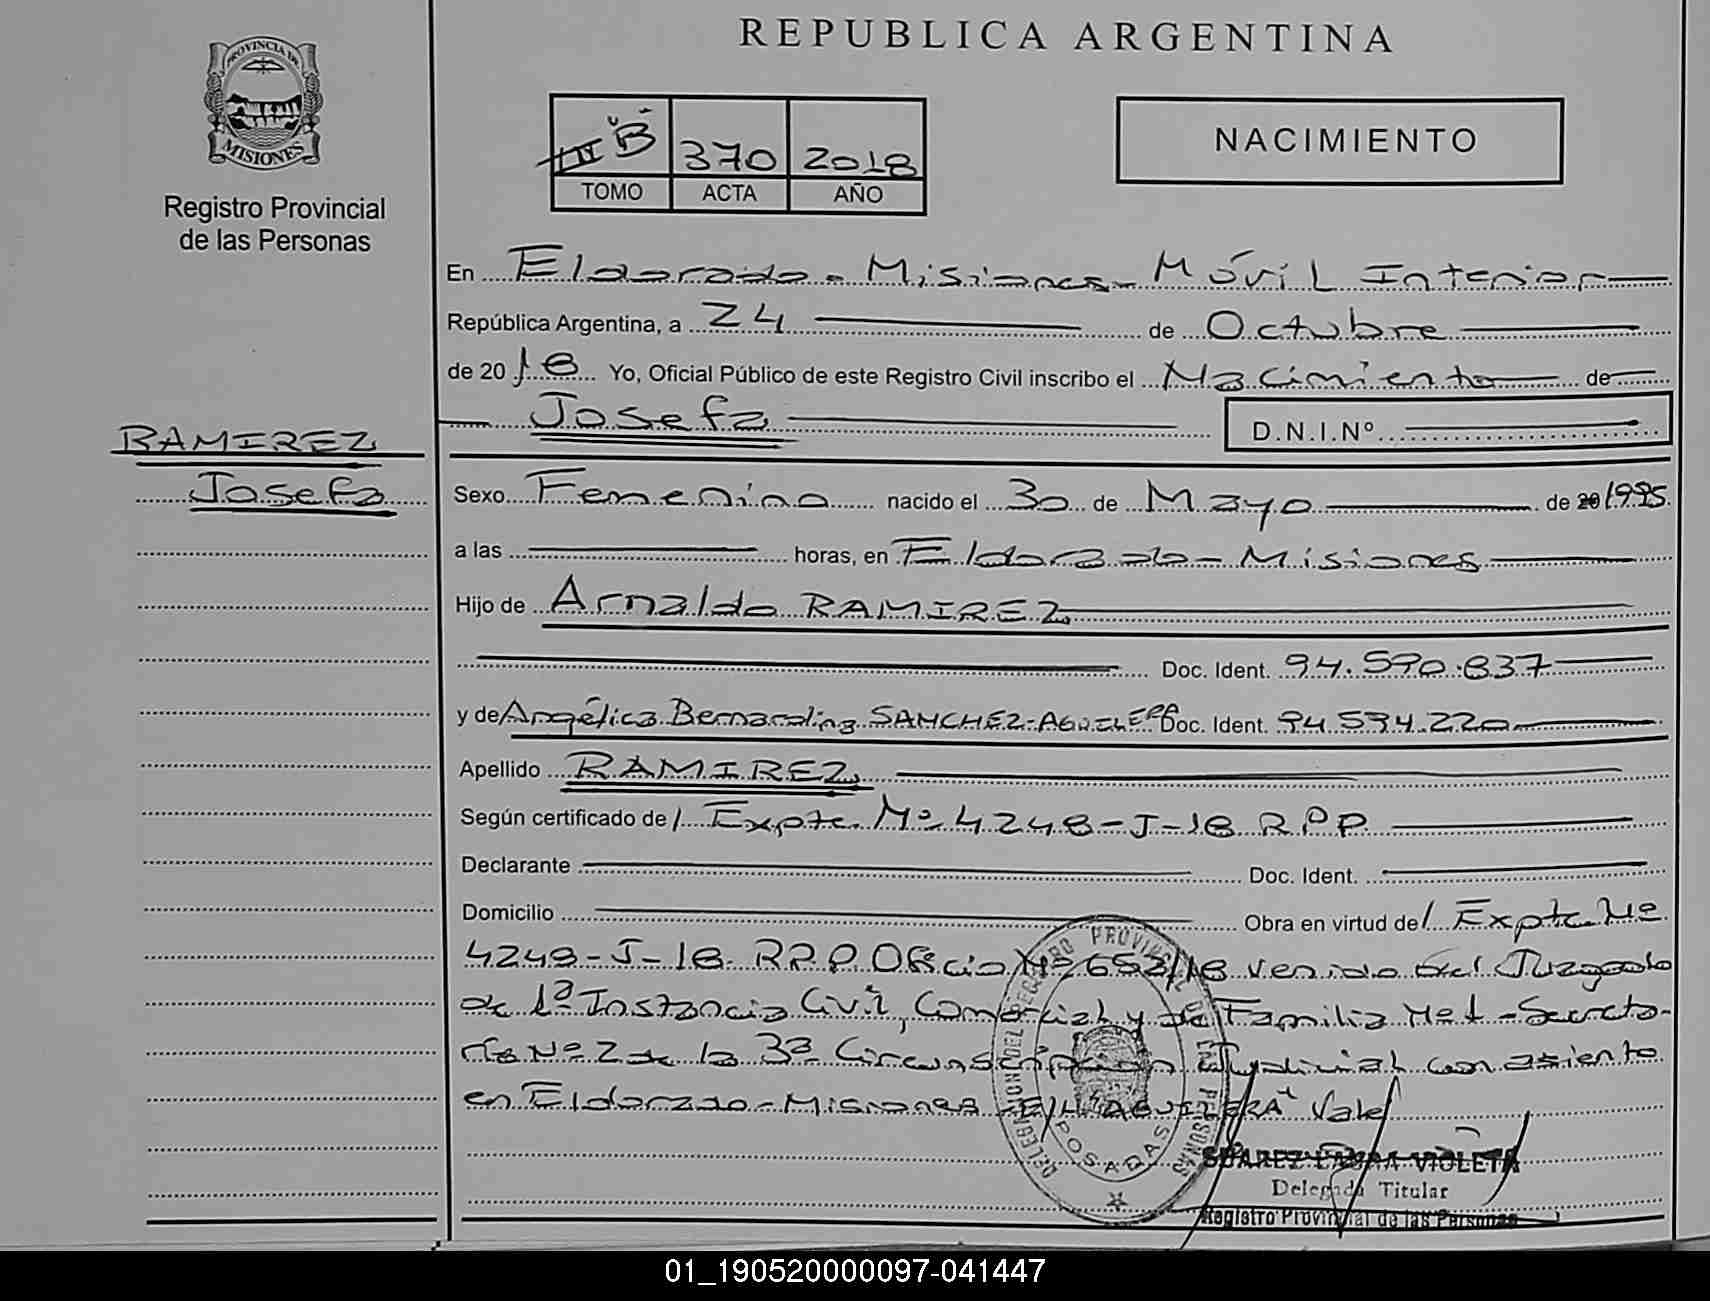 REPUBLICA ARGENTINA
PROVINCIA DE
MISIONES
Registro Provincial
de las Personas
"B" 370 2018
TOMO ACTA AÑO
NACIMIENTO
En Eldorado - Misiones - Móvil Interior
República Argentina, a 24 de Octubre
de 2018 Yo, Oficial Público de este Registro Civil inscribo el Nacimiento de
Josefa D.N.I.Nº
RAMIREZ
Josefa
Sexo Femenino nacido el 30 de Mayo de 20/1995
a las horas, en Eldorado - Misiones
Hijo de Arnaldo RAMIREZ
Doc. Ident. 94.590.837
y de Angélica Bernardina SANCHEZ-AGUILERA Doc. Ident. 94.594.220
Apellido RAMIREZ
Según certificado de / Expte. Nº 4248-J-18 R.P.P
Declarante Doc. Ident.
Domicilio Obra en virtud de / Expte Nº
4248-J-18 R.P.P Oficio Nº 652/18 venido del Juzgado
de 1ª Instancia Civil, Comercial y de Familia Nº 1 - Secreta-
ría Nº 2 de la 3ª Circunscripción Judicial con asiento
en Eldorado - Misiones - E/L "AGUILERA" Vale
DELEGACION DEL REGISTRO PROVINCIAL DE LAS PERSONAS
POSADAS
SUAREZ LAURA VIOLETA
Delegada Titular
Registro Provincial de las Personas
01_190520000097-041447